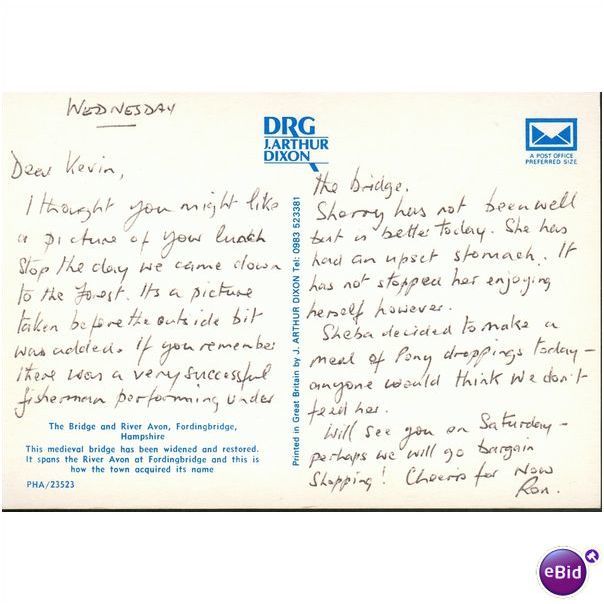 WEDNESDAY
Dear Kevin,
I thought you might like
a picture of your lunch
stop the day we came down
to the Forest. Its a picture
taken before the outside bit
was added. If you remember
there was a very successful
fisherman performing under
The Bridge and River Avon, Fordingbridge,
Hampshire
This medieval bridge has been widened and restored.
It spans the River Avon at Fordingbridge and this is
how the town acquired its name
PHA/23523
DRG
J.ARTHUR
DIXON
Printed in Great Britain by J. ARTHUR DIXON Tel: 0983 523381
A POST OFFICE
PREFERRED SIZE
the bridge.
Sherry has not been well
but is better today. She has
had an upset stomach. It
has not stopped her enjoying
herself however.
Sheba decided to make a
meal of Pony droppings today –
anyone would think we don't
feed her.
Will see you on Saturday –
perhaps we will go bargain
shopping! Cheerio for now
Ron.
eBid